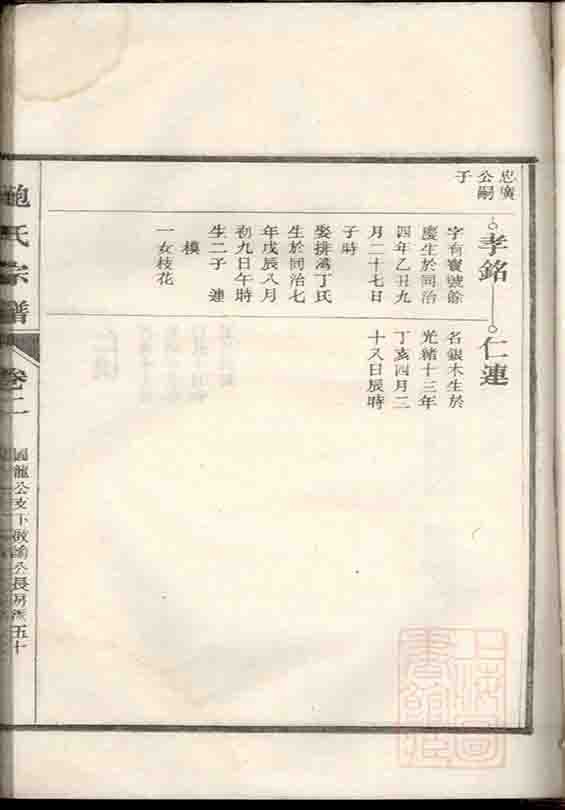 忠廣
公嗣
子
孝銘
字有寶號餘
慶生於同治
四年乙丑九
月二十七日
子時
娶排澫丁氏
生於同治七
年戊辰八月
初九日午時
生二子 連
模
一女枝花
仁連
名銀木生於
光緒十三年
丁亥四月二
十八日辰時
鮑氏宗譜
卷二
國龍公支下啟諭公長房派 五十
上海圖
書館藏